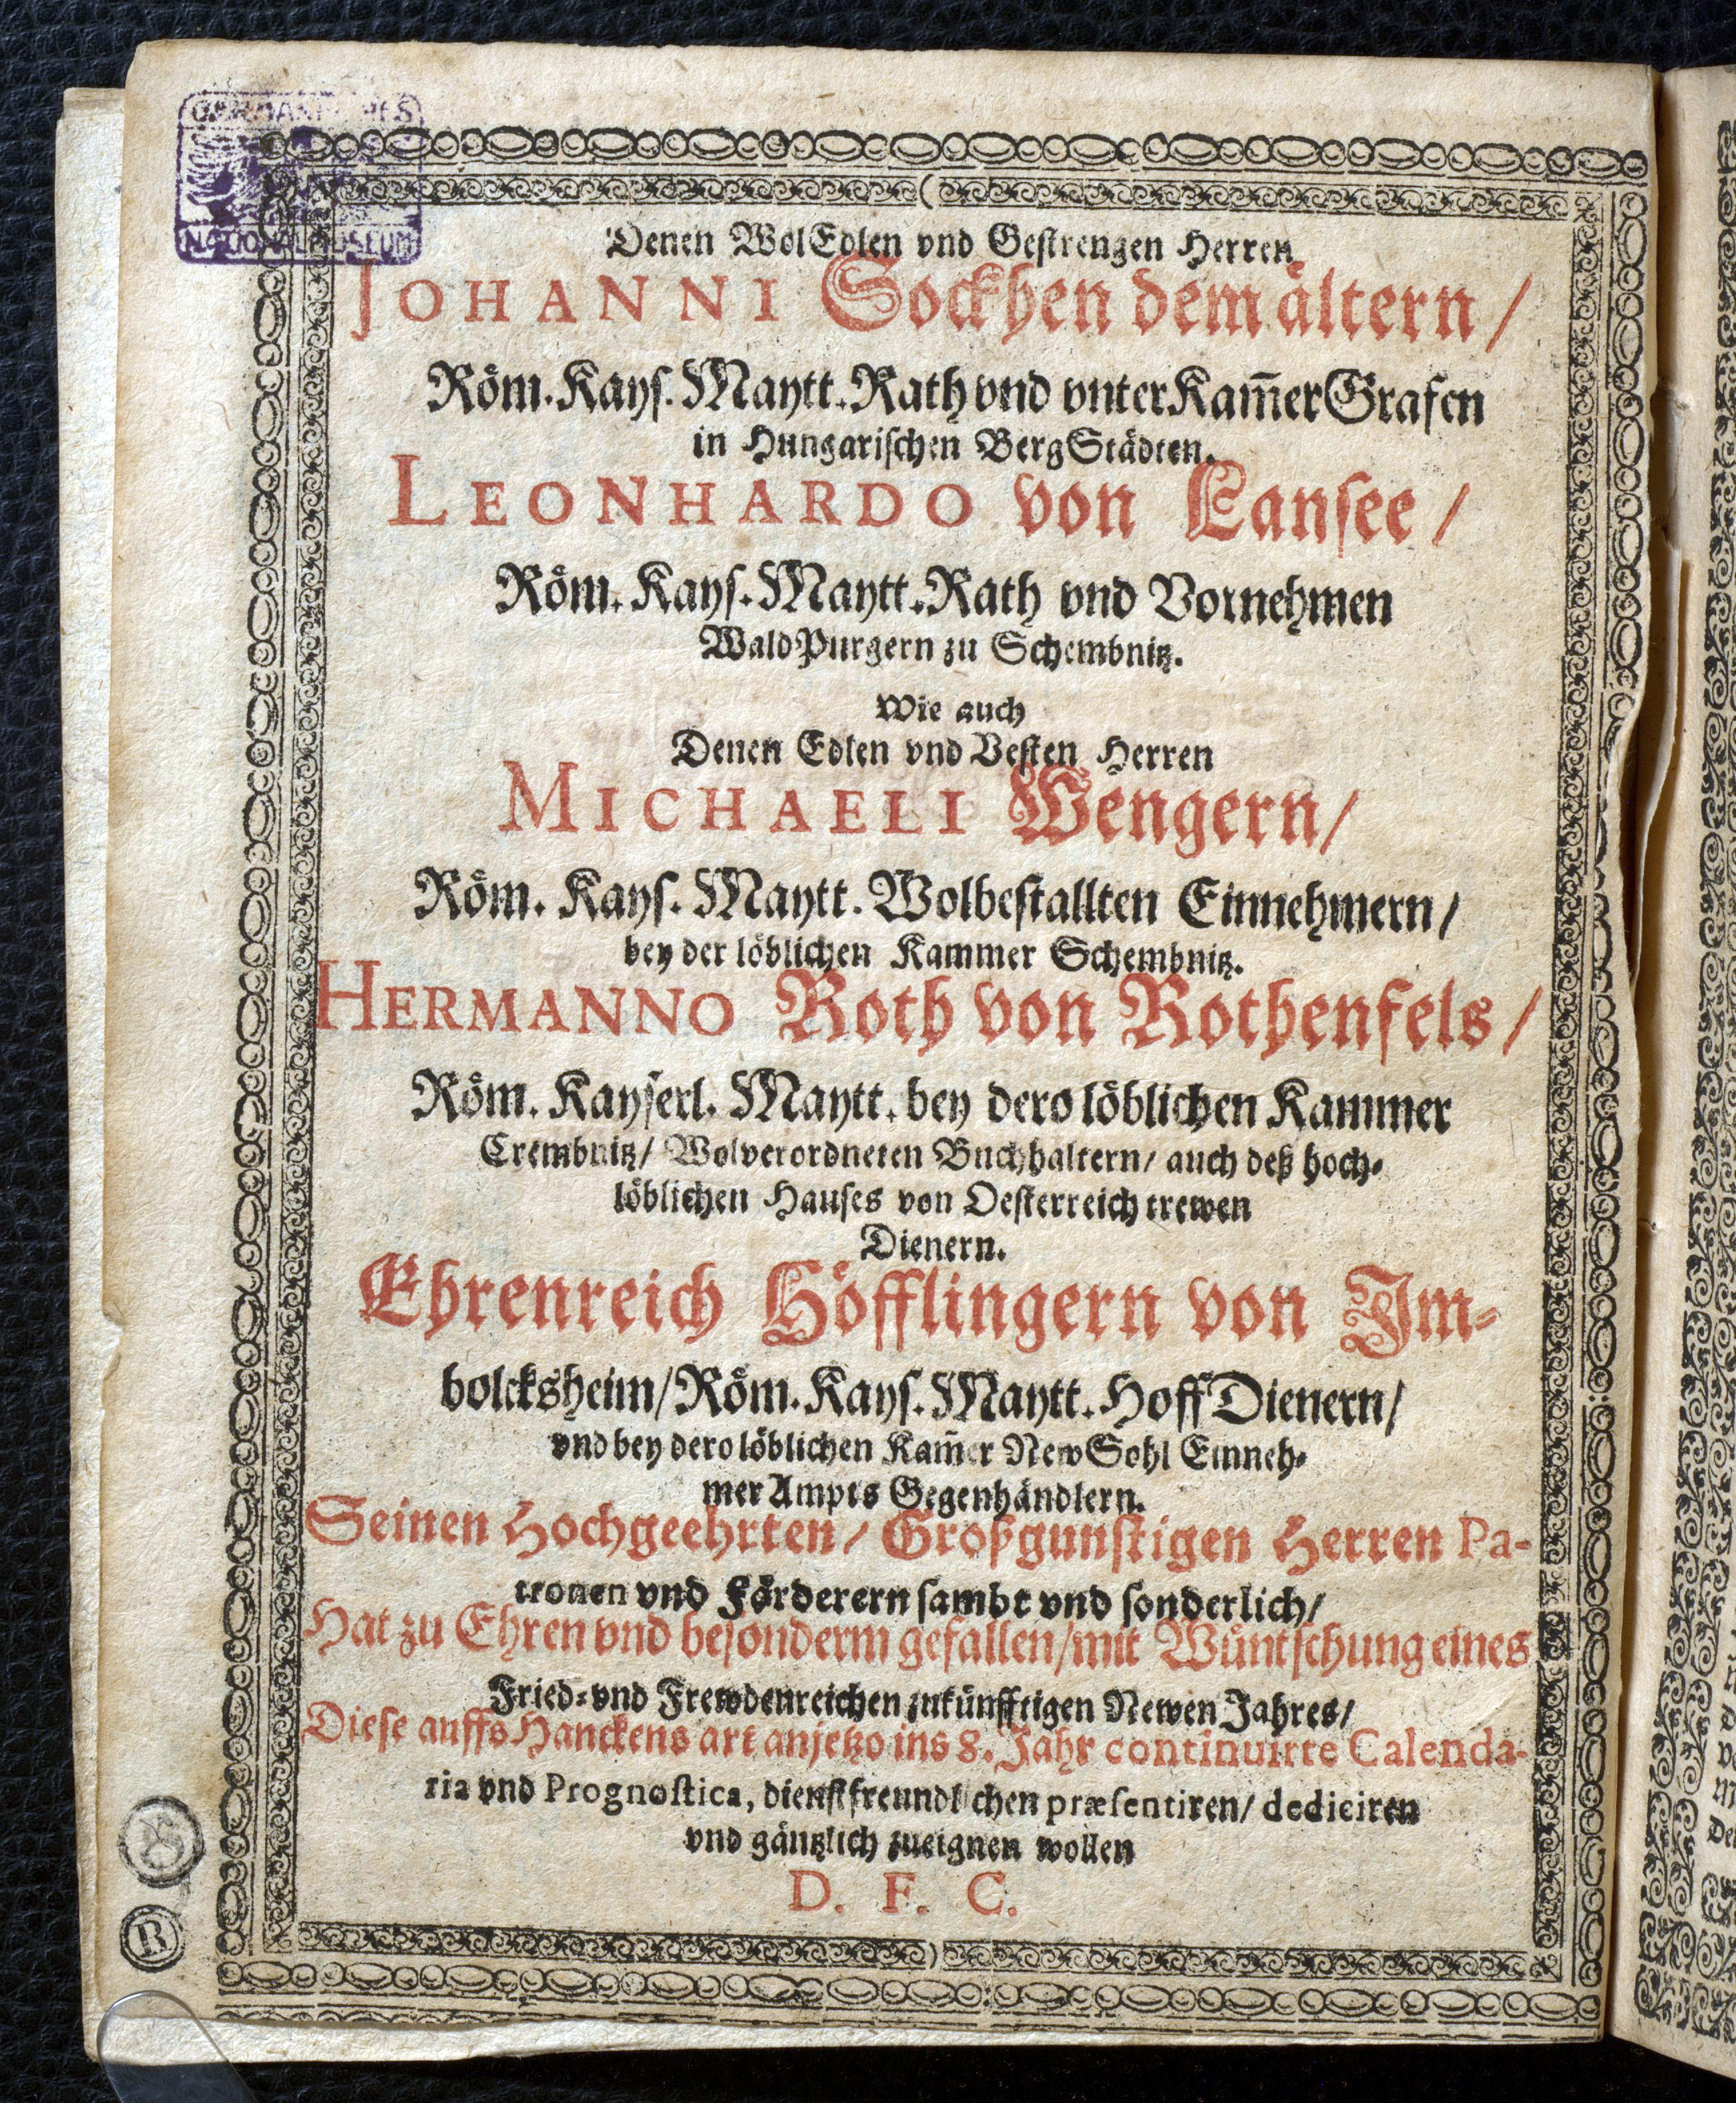 GERMANISCHES
NATIONALMUSEUM
Denen WolEdlen vnd Gestrengen Herren
JOHANNI Sockhen dem ältern /
Röm. Kays. Maytt. Rath vnd vnterKam̃erGrafen
in Hungarischen BergStädten.
LEONHARDO von Lansee /
Röm. Kays. Maytt. Rath vnd Vornehmen
WaldPurgern zu Schembnitz.
Wie auch
Denen Edlen vnd Vesten Herren
MICHAELI Wengern /
Röm. Kays. Maytt. Wolbestallten Einnehmern /
bey der löblichen Kammer Schembnitz.
HERMANNO Roth von Rothenfels /
Röm. Kayserl. Maytt. bey dero löblichen Kammer
Crembnitz / Wolverordneten Buchhaltern / auch deß hoch-
löblichen Hauses von Oesterreich trewen
Dienern.
Ehrenreich Höfflingern von Jm-
bolcksheim / Röm. Kays. Maytt. HoffDienern /
vnd bey dero löblichen Kam̃er NewSohl Einneh-
mer Ampts Gegenhändlern.
Seinen Hochgeehrten / Großgunstigen Herren Pa-
tronen vnd Förderern sambt vnd sonderlich /
Hat zu Ehren vnd besonderm gefallen / mit Wüntschung eines
Fried- vnd Frewdenreichen zukünfftigen Newen Jahres /
Diese auffs Hanckens art anjetzo ins 8. Jahr continuirte Calenda-
ria vnd Prognostica, dienstfreundlichen præsentiren / dediciren
vnd gäntzlich zueignen wollen
D. F. C.
R